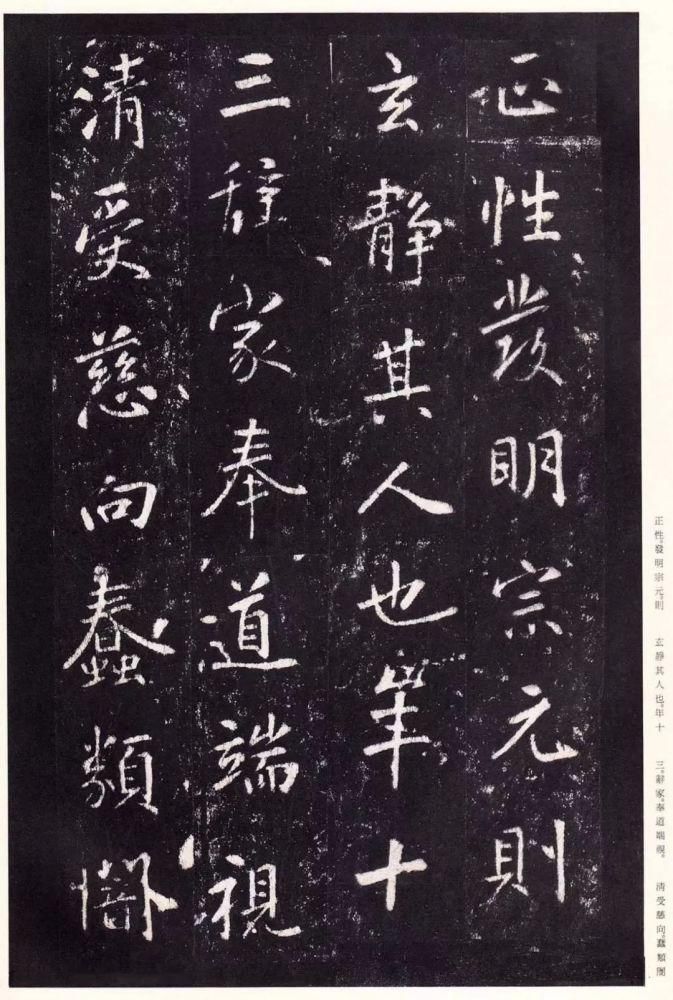 正性發明宗元則
玄靜其人也年十
三辭家奉道端視
清受慈向蠢類
正性。發明宗元。則
玄靜其人也。年十
三。辭家。奉道端視。
清受慈向。蠢類闇